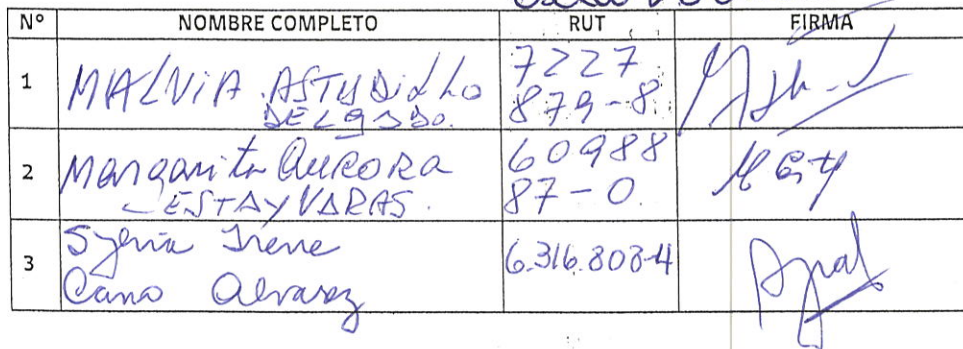 Nº NOMBRE COMPLETO RUT FIRMA
1 MALVIA ASTUDILLO DELGADO. 7227 879-8
2 Margarita Aurora ESTAY VARAS. 60988 87-0
3 Sylvia Irene Cano Alvarez 6.316.803-4